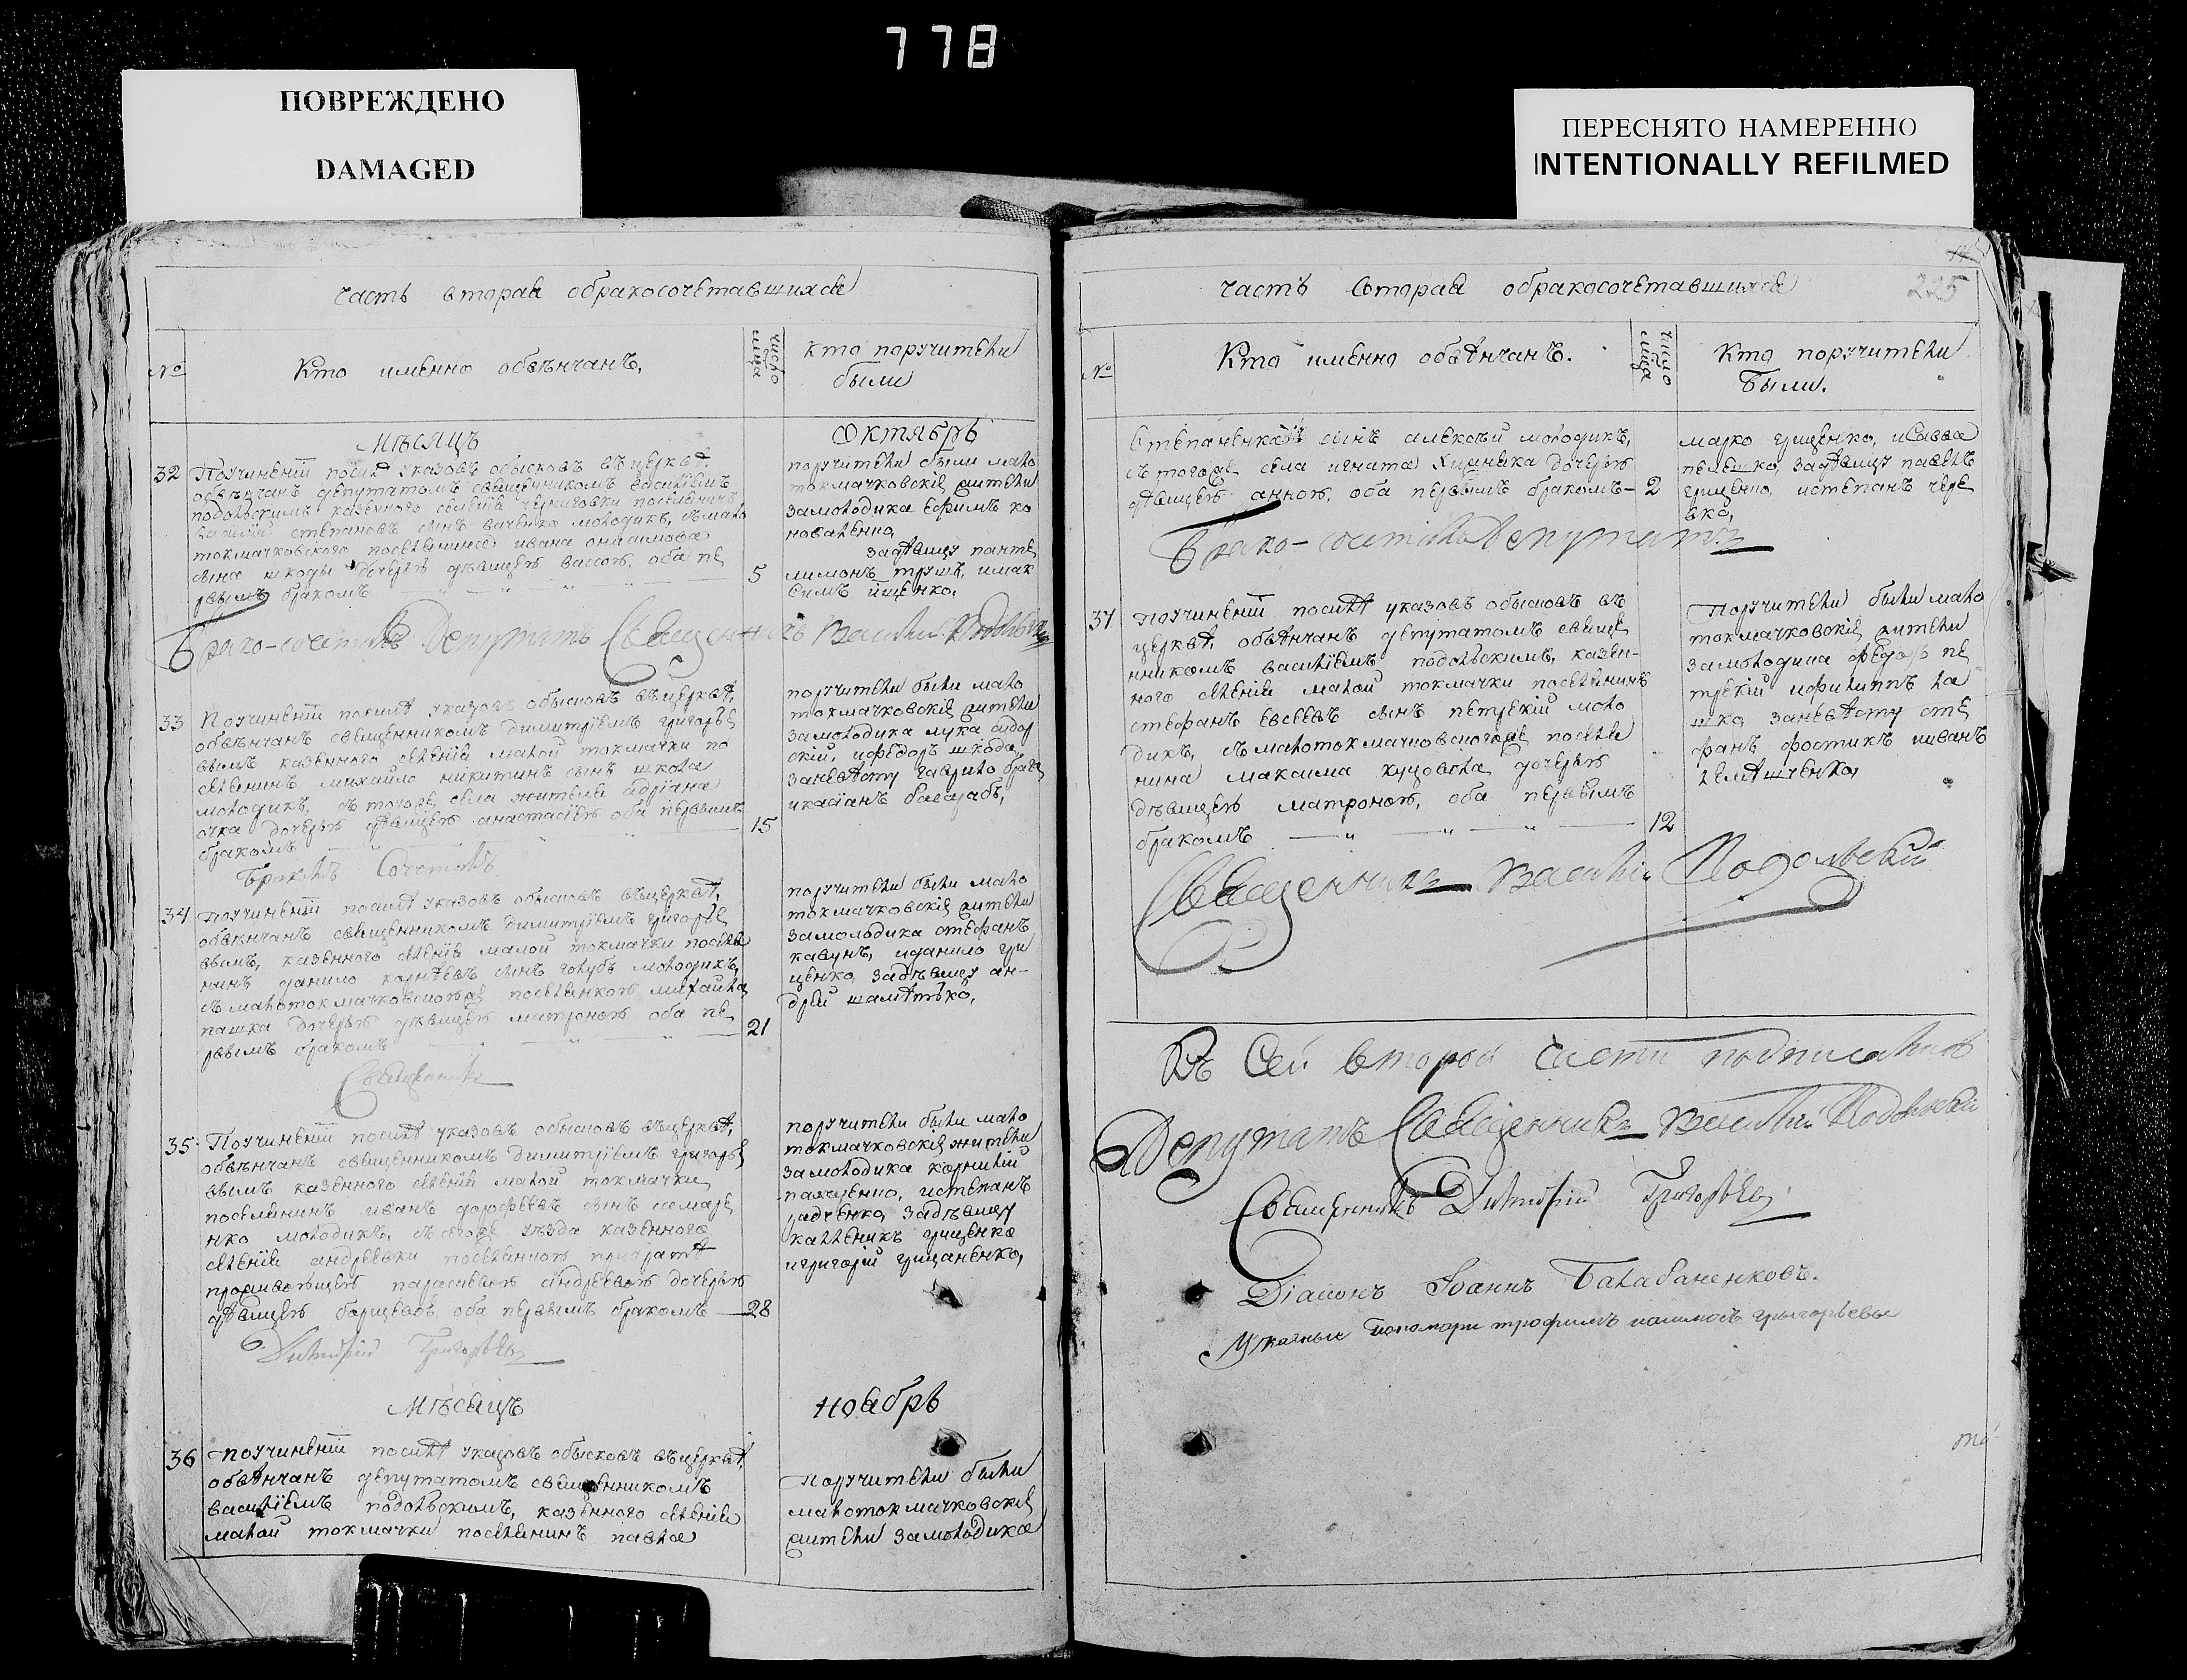 778
ПОВРЕЖДЕНО
DAMAGED
ПЕРЕСНЯТО НАМЕРЕННО
INTENTIONALLY REFILMED
часть вторая обракосочетавшихся
№
Кто именно обвѣнчанъ,
число мѣсяца
кто поручители
были
Мѣсяцъ
Октябрь
32
Поучиненіи послѣ указовъ обысковъ вцеркве,
обвѣнчанъ депутатомъ священникомъ василіемъ
подольскимъ казенного селенія черниговки поселенинъ
василій степановъ сынъ ваченко молодикъ, съ мало
токмачковского поселенина ивана
сына шкоды дочерью дѣвицею вассою, оба пе
рвымъ бракомъ
5
поручители были мало
токмачковскіе жители
замолодика ефимъ ко
новаленко,
задѣвицу панте
лимонъ трушъ, имак
симъ ищенко,
Брако-сочеталъ Депутатъ Священникъ Василій Подольскій
33
Поучиненіи послѣ указовъ обысковъ вцеркве,
обвѣнчанъ священникомъ димитріемъ григорье
вымъ казенного селенія малой токмачки по
селенинъ михайло никитинъ сынъ школа
молодикъ, съ тогоже села жителя адріана
очка дочерью дѣвицею анастасіею оба первымъ
бракомъ
15
поручители были мало
токмачковскіе жители
замолодика лука сидор
скій, ифедоръ шкода,
заневѣсту гаврило брага
икасіанъ басарабъ,
Бракомъ Сочеталъ
34
Поучиненіи послѣ указовъ обысковъ вцеркве,
обвѣнчанъ священникомъ димитріемъ григорье
вымъ, казенного селенія малой токмачки поселя
нинъ данило корнѣевъ сынъ голубъ молодикъ,
съ малотокмачковскогоже поселенкою михайла
пашка дочерью дѣвицею матроною оба пе
рвымъ бракомъ
21
поручители были мало
токмачковскіе жители
замолодика стефанъ
кавунъ, иданило гри
ценко, задѣвицу ан-
дрей шаматько,
Священникъ
35
Поучиненіи послѣ указовъ обысковъ вцеркве,
обвѣнчанъ священникомъ димитріемъ григорье
вымъ казенного селенія малой токмачки
поселянинъ иванъ дорофеевъ сынъ самаре
нко молодикъ, съ сегоже уѣзда казенного
селенія андреевки поселенною
проживающею параскевою андреевою дочерью
дѣвицею борщевою, оба первымъ бракомъ
28
поручители были мало
токмачковскіе жители
замолодика корнилій
пащенко, истепанъ
радченко, задѣвицу
калленикъ грищенко
игригорій грицаненко,
Димитрій Григорьевъ
Мѣсяцъ
ноябрь
36
поучиненіи послѣ указовъ обысковъ вцеркве,
обвѣнчанъ депутатомъ священникомъ
василіемъ подольскимъ, казенного селенія
малой токмачки поселенинъ павла
Поручители были
малотокмачковскіе
жители замолодика
225
часть вторая обракосочетавшихся
№
Кто именно обвѣнчанъ.
число мѣсяца
Кто поручители
были.
Степаненка сынъ алексѣй молодикъ,
съ тогоже села игната дочерью
дѣвицею анною, оба первымъ бракомъ-
2
марко грищенко, исавва
пелешко, задѣвицу павелъ
грищенко, истепанъ чере
вко,
Брако-сочеталъ Депутатъ
37
поучиненіи послѣ указовъ обысковъ въ
церкве, обвѣнчанъ депутатомъ свяще
нникомъ василіемъ подольскимъ, казен-
ного селенія малой токмачки поселенинъ
стефанъ евсеевъ сынъ петрскій моло
дикъ, съ малотокмачковскогоже поселе
нина максима куцовола дочерью
дѣвицею матроною, оба первымъ
бракомъ
12
Поручители были мало
токмачковскіе жители
замолодика федоръ пе
трскій ифилиппъ ла
шко, заневѣсту сте
фанъ фостикъ ииванъ
клемѣшченко,
Священникъ Василій Подольскій
Въ Сей второй части подписались
Депутатъ Священникъ Василій Подольскій
Священникъ Димитрій Григорьевъ
Діаконъ Іоаннъ Балабаненковъ.
Указные Пономари трофимъ икимовъ григорьевы